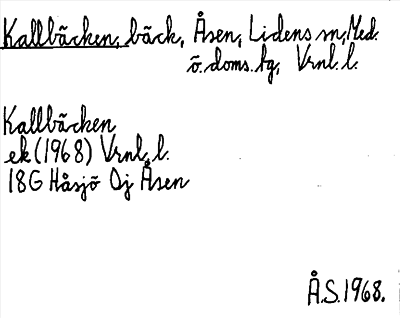 Kallbäcken, bäck, Åsen, Lidens sn, Med.
ö. doms. hg, Vrnl. l.
Kallbäcken
ek (1968) Vrnl. l.
18G Håsjö 0j Åsen
Å.S. 1968.